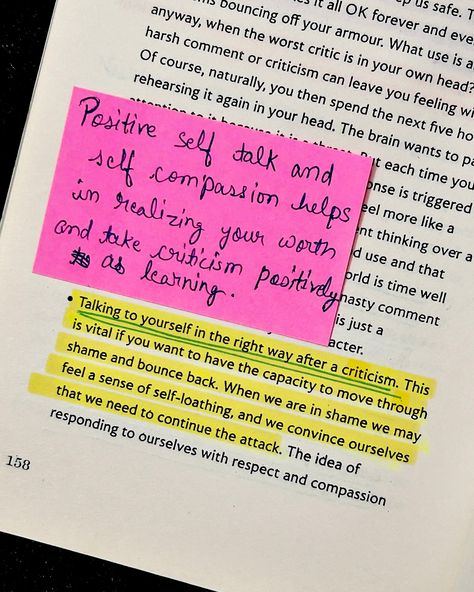 s it all OK forever and eve
ms bouncing off your armour. What use is a
anyway, when the worst critic is in your own head?
harsh comment or criticism can leave you feeling w
Of course, naturally, you then spend the next five ho
rehearsing it again in your head. The brain wants to pa
each time you
onse is triggered
eel more like a
nt thinking over a
d use and that
orld is time well
nasty comment
is just a
acter.
Positive self talk and
self compassion helps
in realizing your worth
and take criticism positively
as learning.
• Talking to yourself in the right way after a criticism. This
is vital if you want to have the capacity to move through
shame and bounce back. When we are in shame we may
feel a sense of self-loathing, and we convince ourselves
that we need to continue the attack. The idea of
responding to ourselves with respect and compassion
158